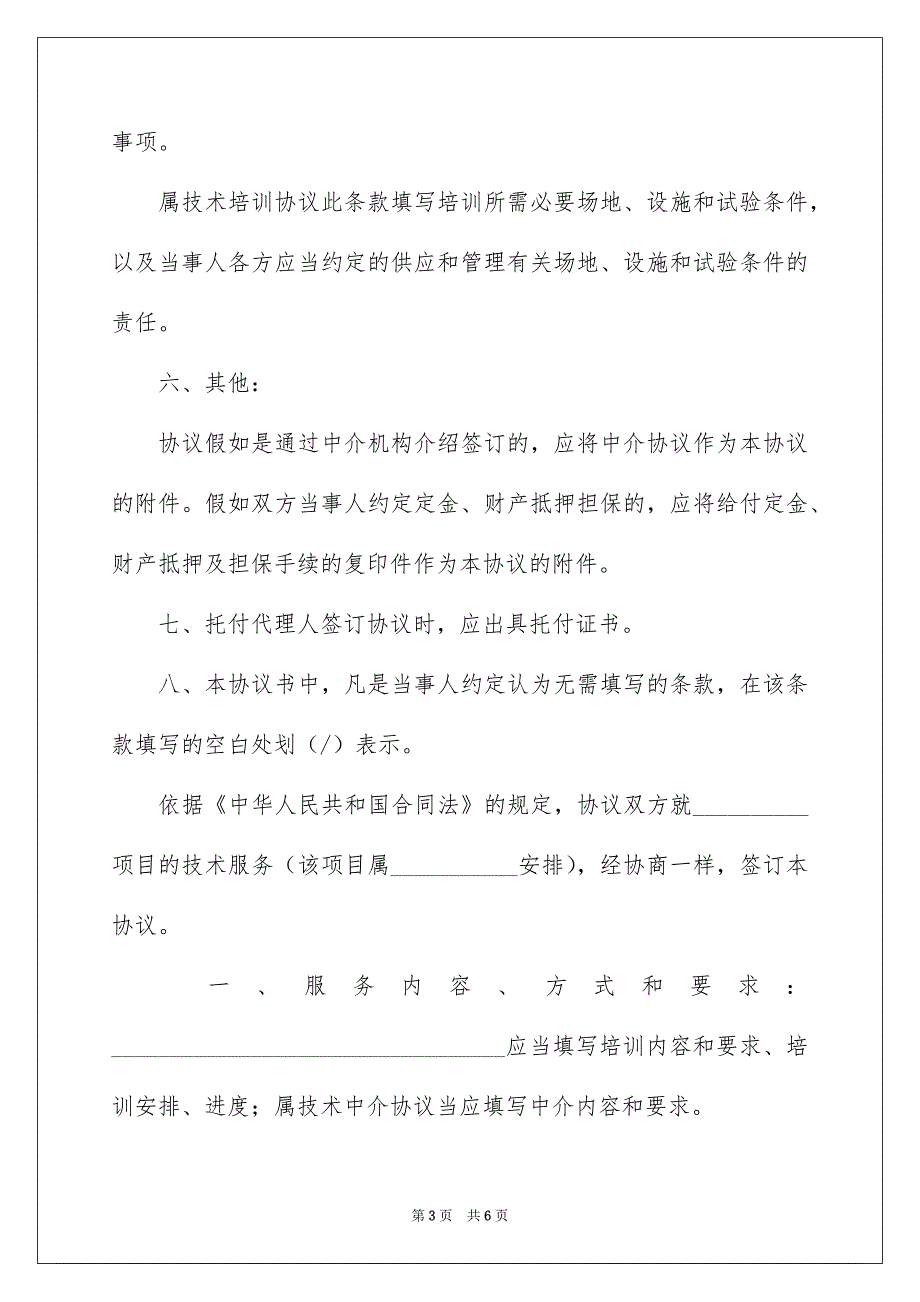 事项。
属技术培训协议此条款填写培训所需必要场地、设施和试验条件，
以及当事人各方应当约定的供应和管理有关场地、设施和试验条件的
责任。
六、其他：
协议假如是通过中介机构介绍签订的，应将中介协议作为本协议
的附件。假如双方当事人约定定金、财产抵押担保的，应将给付定金、
财产抵押及担保手续的复印件作为本协议的附件。
七、托付代理人签订协议时，应出具托付证书。
八、本协议书中，凡是当事人约定认为无需填写的条款，在该条
款填写的空白处划（/）表示。
依据《中华人民共和国合同法》的规定，协议双方就__________
项目的技术服务（该项目属___________安排），经协商一样，签订本
协议。
一、服务内容、方式和要求：
__________________________________应当填写培训内容和要求、培
训安排、进度；属技术中介协议当应填写中介内容和要求。
第 3 页 共 6 页